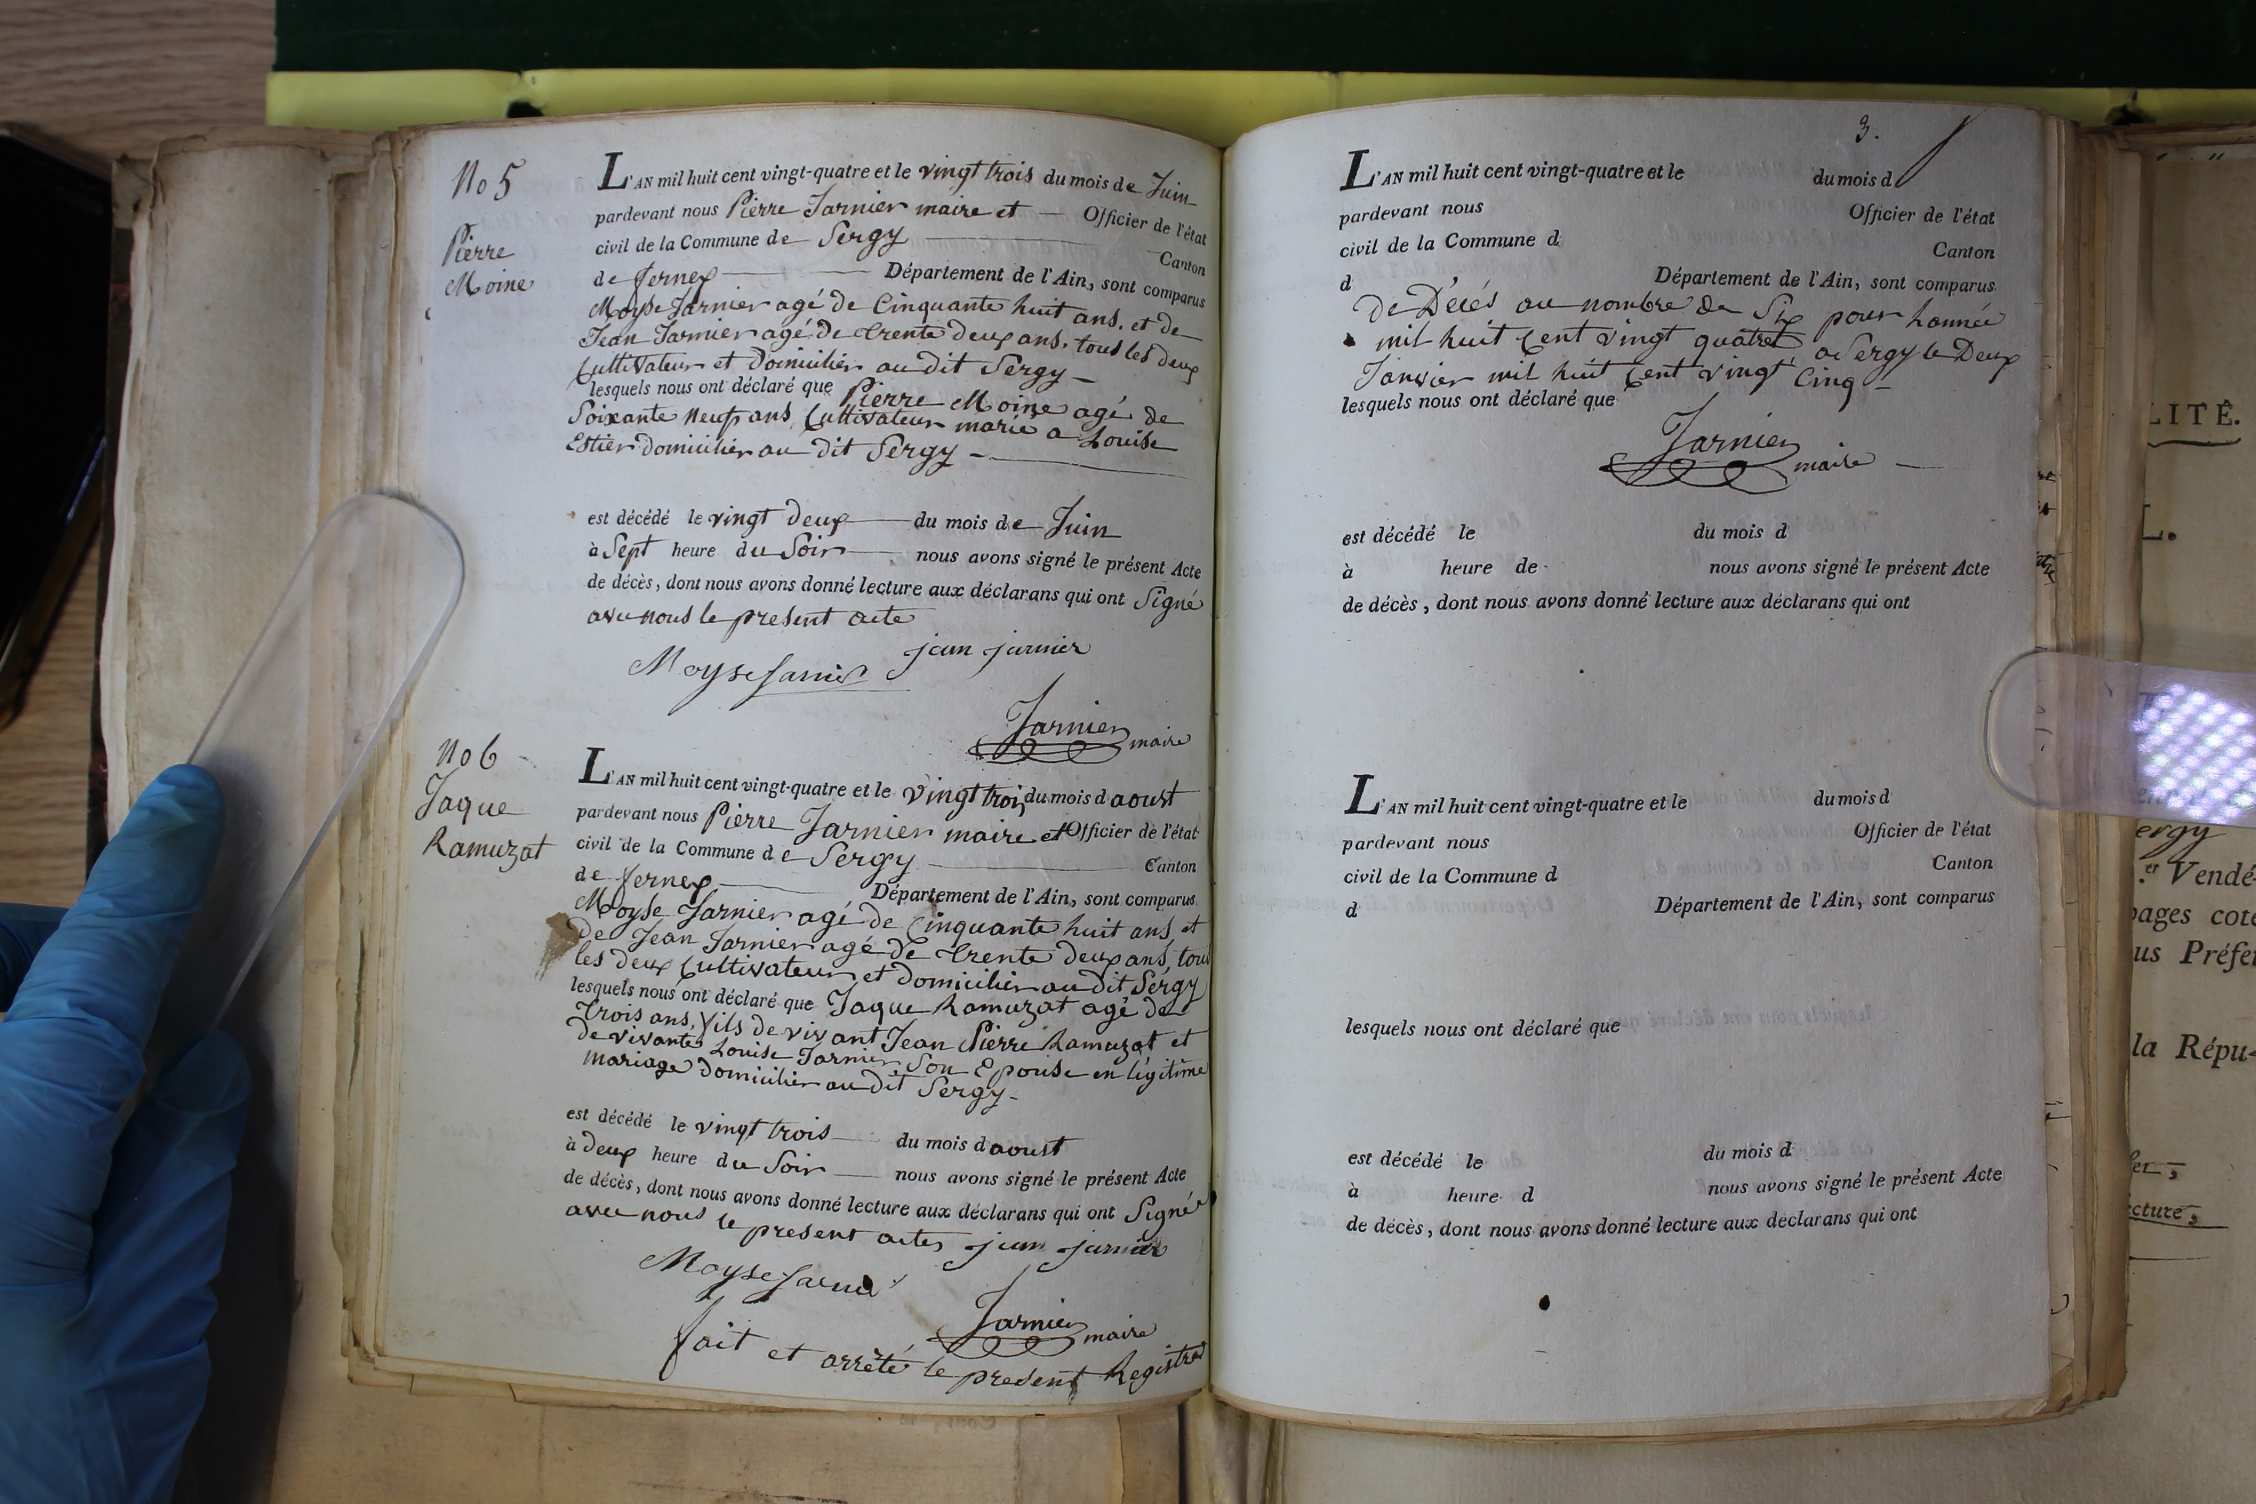 No 5
Pierre
Moine
L'AN mil huit cent vingt-quatre et le vingt trois du mois de Juin
pardevant nous Pierre Jarnier maire et — Officier de l'état
civil de la Commune de Sergy — Canton
de fernex — Département de l'Ain, sont comparus
Moyse Jarnier agé de Cinquante huit ans. et de
Jean Jarnier agé de trente deux ans. tous les deux
Cultivateur et domicilier au dit Sergy —
lesquels nous ont déclaré que Pierre Moine agé de
Soixante neuf ans, Cultivateur marié a Louise
Estier domicilier au dit Sergy —
est décédé le vingt deux — du mois de Juin
à Sept heure du Soir — nous avons signé le présent Acte
de décès, dont nous avons donné lecture aux déclarans qui ont Signé
avec nous le present acte
jean jarnier
Moyse Jarnier
Jarnier maire
No 6
Jaque
Ramuzat
L'AN mil huit cent vingt-quatre et le vingt trois du mois d aoust
pardevant nous Pierre Jarnier maire et Officier de l'état
civil de la Commune de Sergy — Canton
de fernex — Département de l'Ain, sont comparus
Moyse Jarnier agé de Cinquante huit ans, et
de Jean Jarnier agé de trente deux ans, tous
les deux Cultivateur et domicilier au dit Sergy
lesquels nous ont déclaré que Jaque Ramuzat agé de
trois ans, fils de vivant Jean Pierre Ramuzat et
de vivante Louise Jarnier Son Epouse en légitime
mariage domicilier au dit Sergy —
est décédé le vingt trois — du mois d aoust
à deux heure du Soir — nous avons signé le présent Acte
de décès, dont nous avons donné lecture aux déclarans qui ont Signé
avec nous le present actes jean jarnier
Moyse Jarnier
Jarnier maire
fait et arrêté le present Registre
3.
L'AN mil huit cent vingt-quatre et le du mois d
pardevant nous Officier de l'état
civil de la Commune d Canton
d Département de l'Ain, sont comparus
de Décés au nombre de Six pour lannée
mil huit Cent vingt quatre a Sergy le Deux
Janvier mil huit Cent vingt Cinq —
lesquels nous ont déclaré que
Jarnier maire —
est décédé le du mois d
à heure de nous avons signé le présent Acte
de décès, dont nous avons donné lecture aux déclarans qui ont
L'AN mil huit cent vingt-quatre et le du mois d
pardevant nous Officier de l'état
civil de la Commune d Canton
d Département de l'Ain, sont comparus
lesquels nous ont déclaré que
est décédé le du mois d
à heure d nous avons signé le présent Acte
de décès, dont nous avons donné lecture aux déclarans qui ont
LITÉ.
L.
ergy
er Vendé-
pages coté
us Préfet
la Répu-
cture,